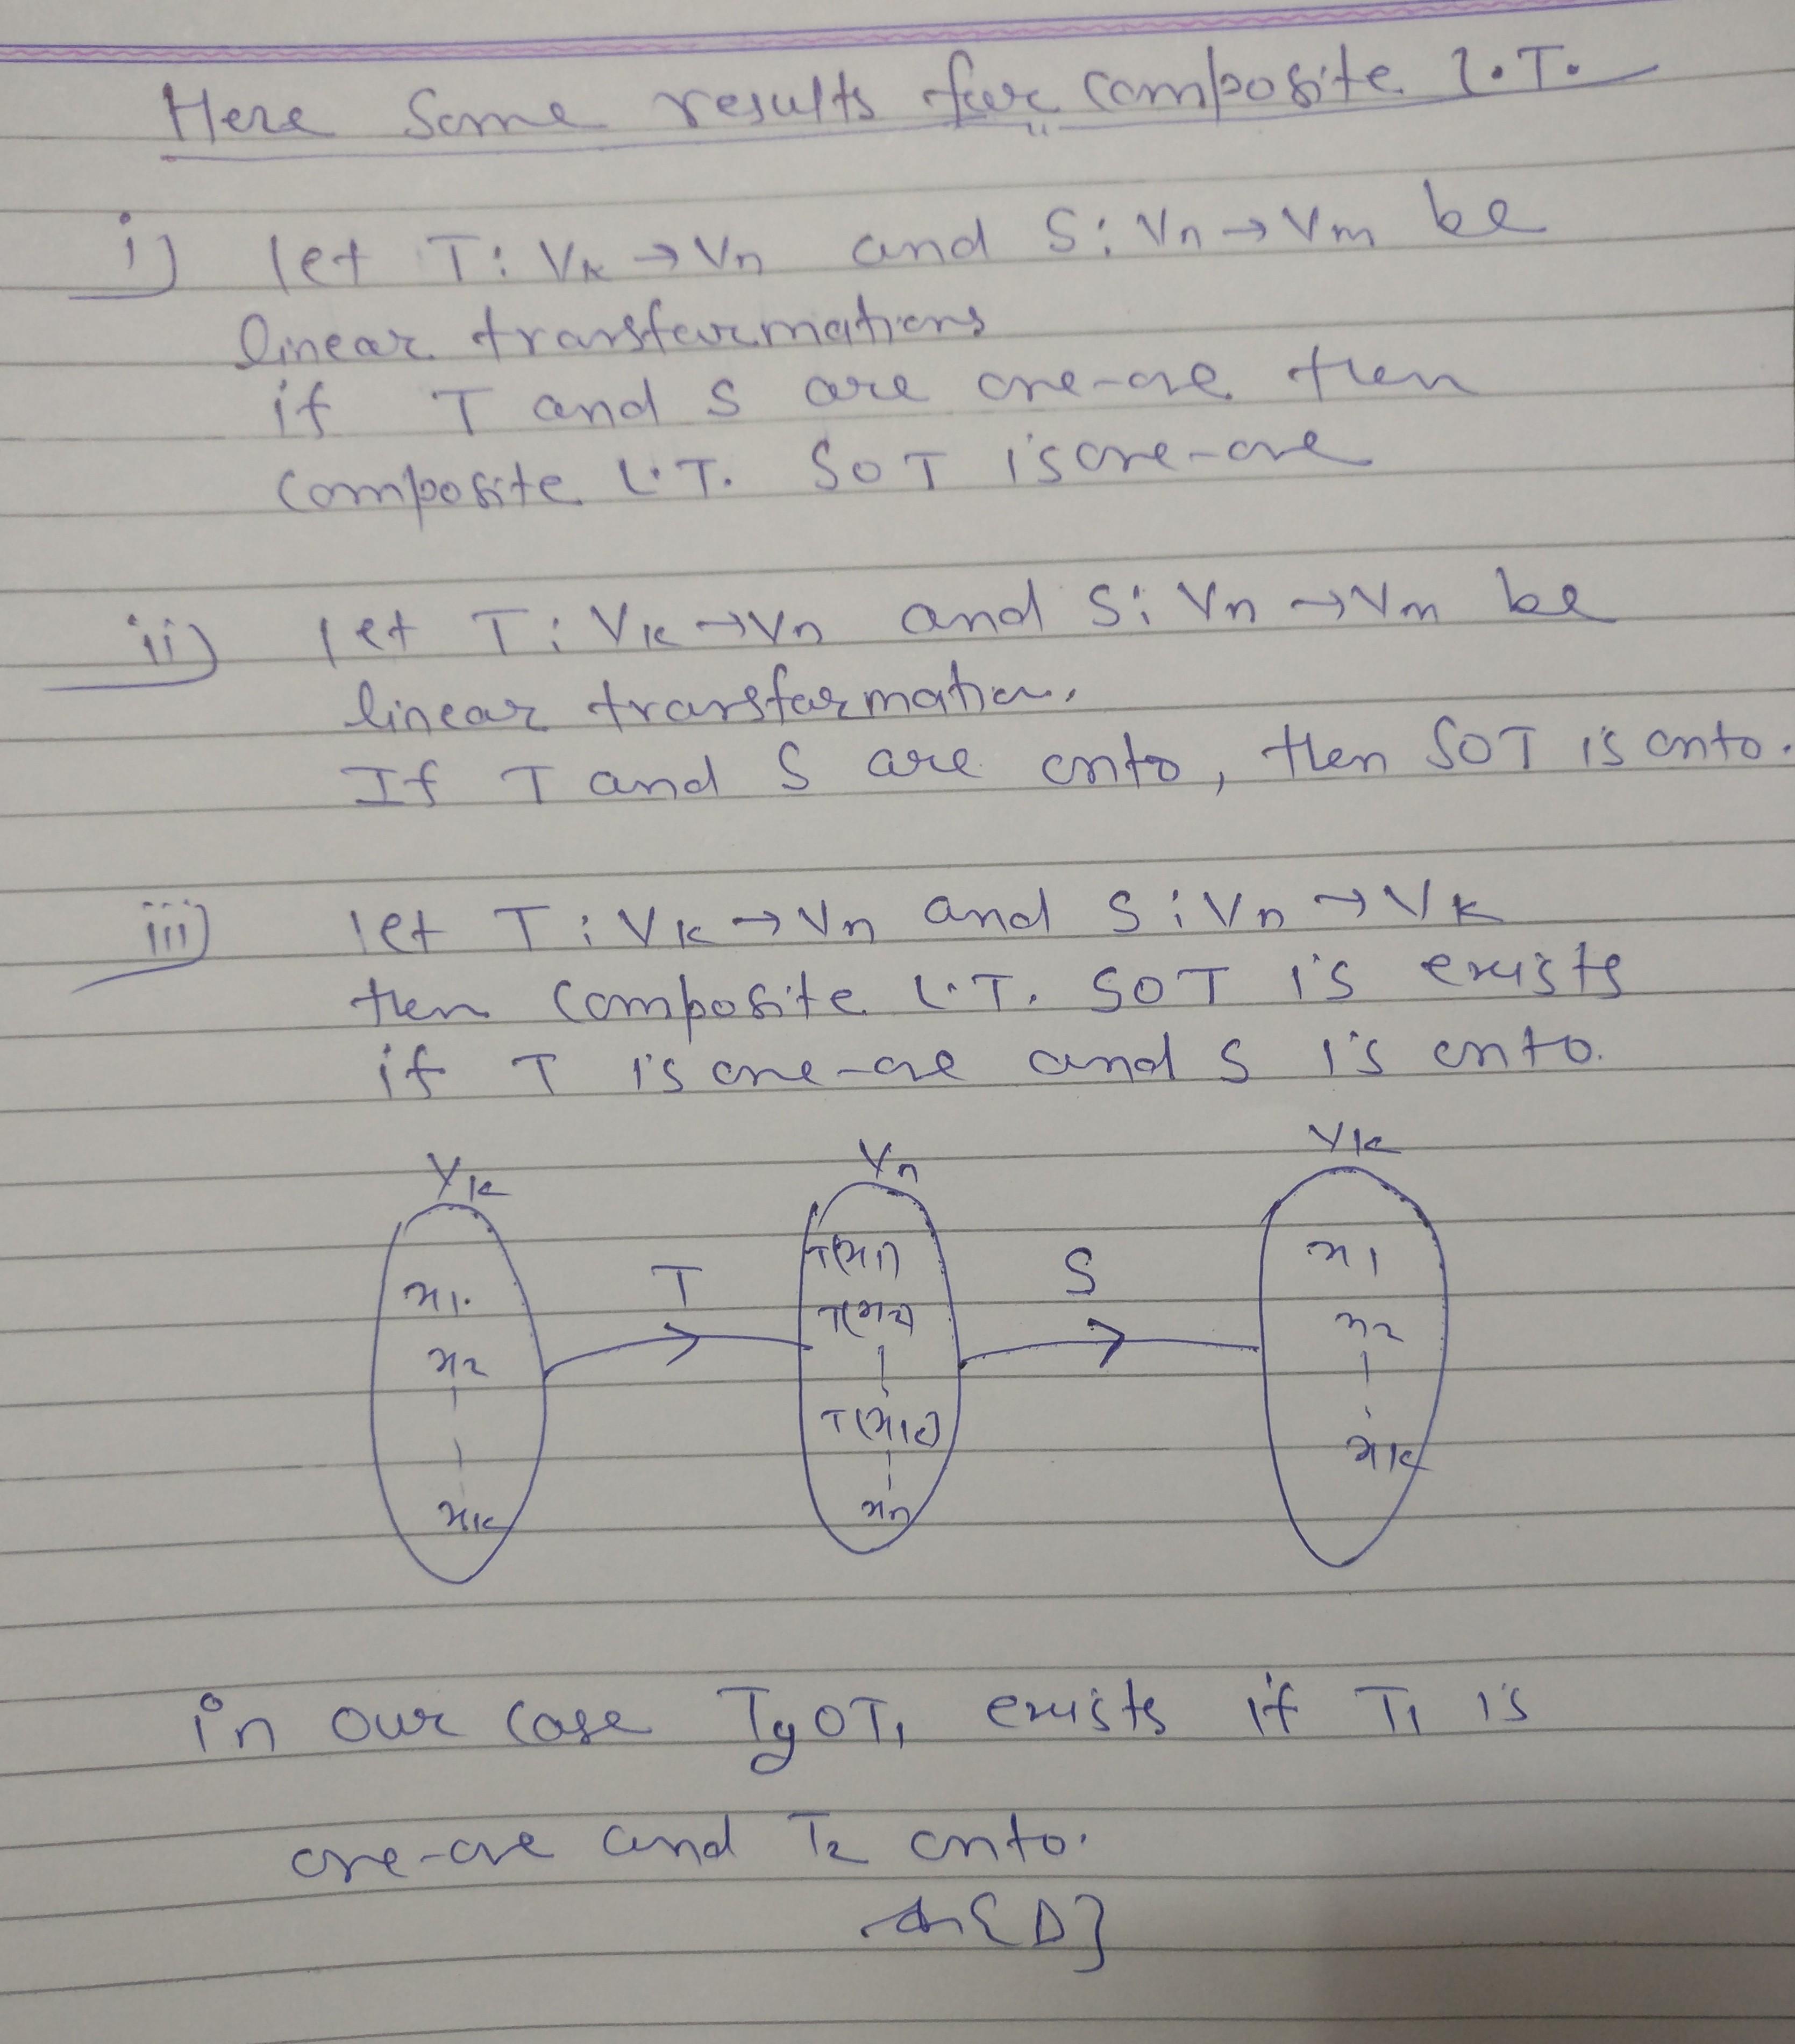 Here Some results for composite L.T.
i) let T: Vk → Vn and S: Vn → Vm be
linear transformations
if T and S are one-one then
composite L.T. SOT is one-one
ii) let T: Vk → Vn and S: Vn → Vm be
linear transformation.
If T and S are onto, then SOT is onto.
iii) let T: Vk → Vn and S: Vn → Vk
then composite L.T. SOT is exists
if T is one-one and S is onto.
Vk Vn Vk
x1. T T(x1) S x1
x2 T(x2) x2
T(xk) xk
xk xn
in our case TgOT1 exists if T1 is
one-one and T2 onto.
{D}